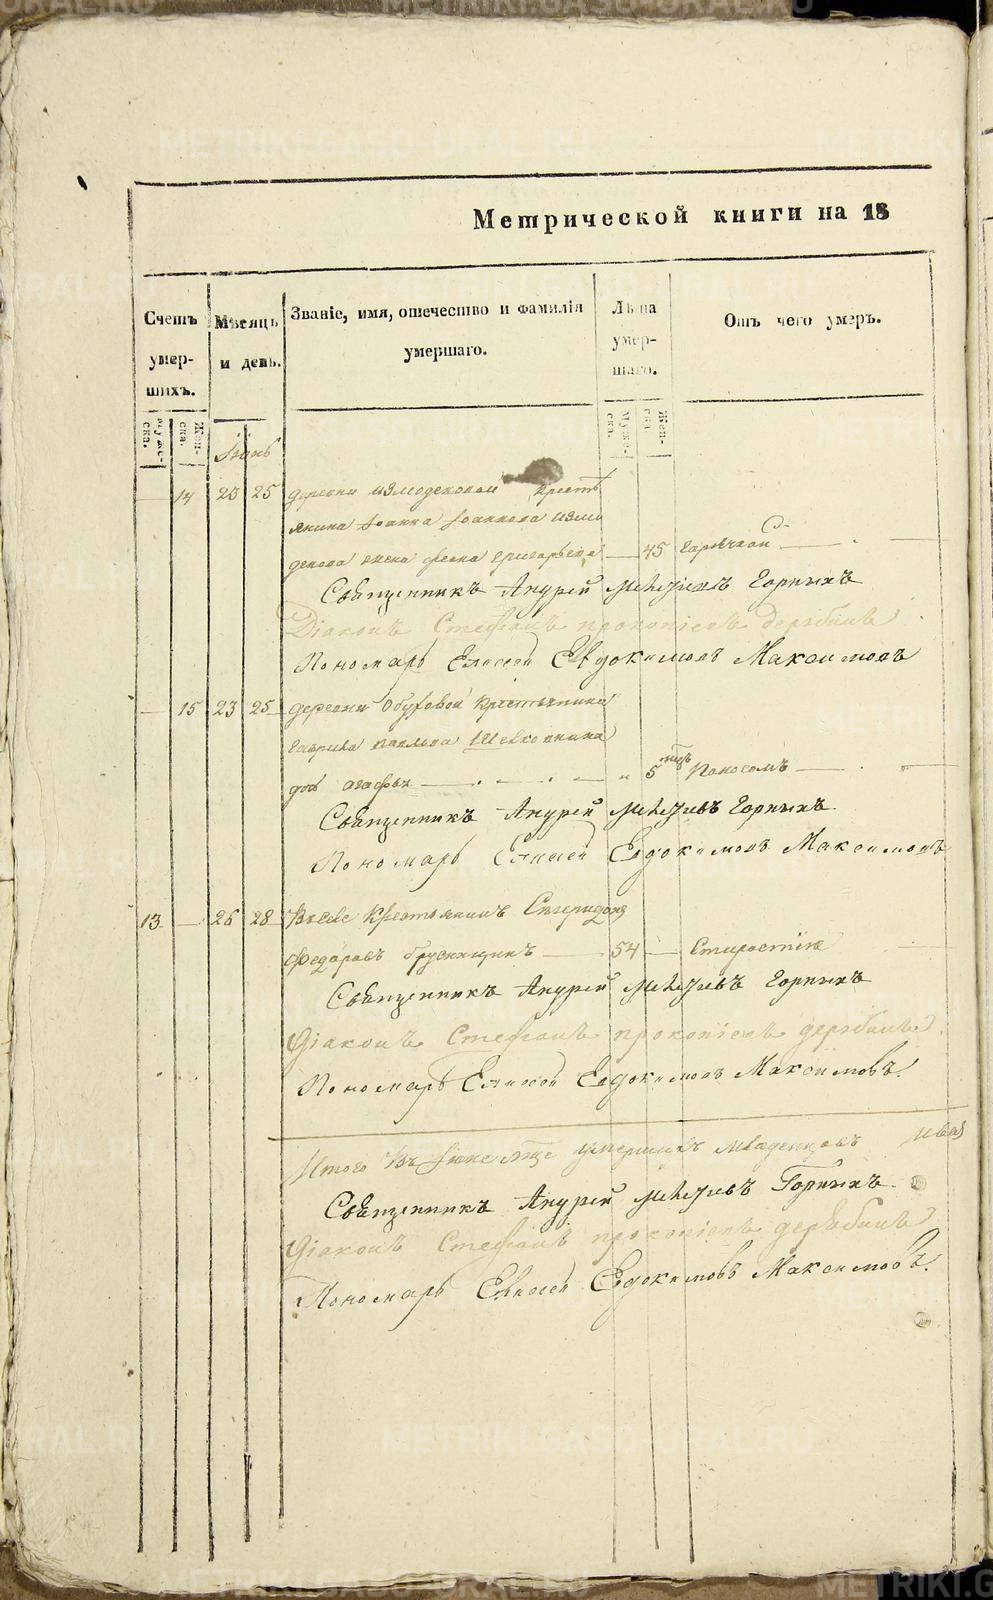 Метрической книги на 18
Счетъ умершихъ.
Мѣсяцъ и день.
Званіе, имя, отечество и фамилія умершаго.
Лѣта умершаго.
Отъ чего умеръ.
Мужеска. Женска.
Мужеска. Женска.
Іюнь
14 23 25 деревни крестьянина Іоанна Іоаннова
жена Григорьева 45 Горячкой
Священникъ Андрей Горныхъ
Діаконъ Стефанъ Прокопіевъ Дерябинъ
Пономарь Елисей Евдокимовъ Максимовъ
15 23 25 деревни Обуховой крестьянина
Гаврила Павлова Шевкоплина
дочь Агафья 5 Поносомъ
Священникъ Андрей Горныхъ.
Пономарь Елисей Евдокимовъ Максимовъ
13 26 28 крестьянинъ Спиридонъ
Федоровъ Брусницинъ 54 Старостію
Священникъ Андрей Горныхъ
Діаконъ Стефанъ Прокопіевъ Дерябинъ
Пономарь Елисей Евдокимовъ Максимовъ
Итого въ Іюне умершихъ младенцовъ
Священникъ Андрей Горныхъ.
Діаконъ Стефанъ Прокопіевъ Дерябинъ
Пономарь Елисей Евдокимовъ Максимовъ.
METRIKI.GASO-URAL.RU